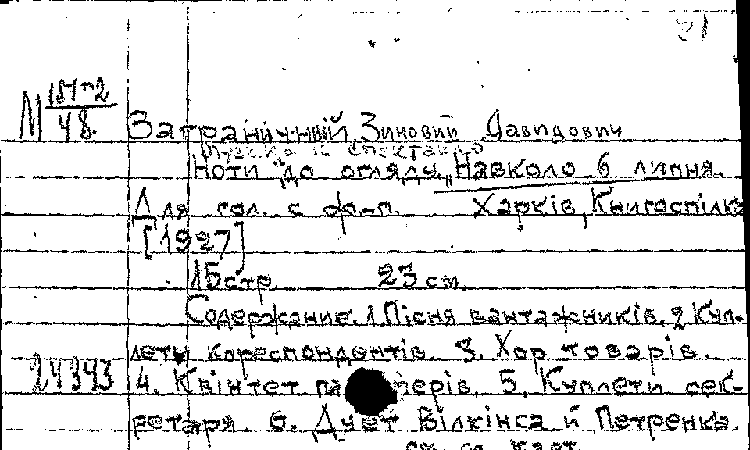 21
М 15Н-2
48.
Заграничний Зиновий Давидович
Музыка к спектаклю
Ноти "до огляду „Навколо 6 липня.
Для гол. с ф-п. Харків, Книгоспілка
[1927]
15стр 23 см.
Содержание. 1. Пісня вантажників. 2 Куп-
лети кореспондентів. 3. Хор товарів.
24343 4. Квінтет 5. Куплети сек-
ретаря. 6. Дует Вілкінса й Петренка.
см. сл. карт.